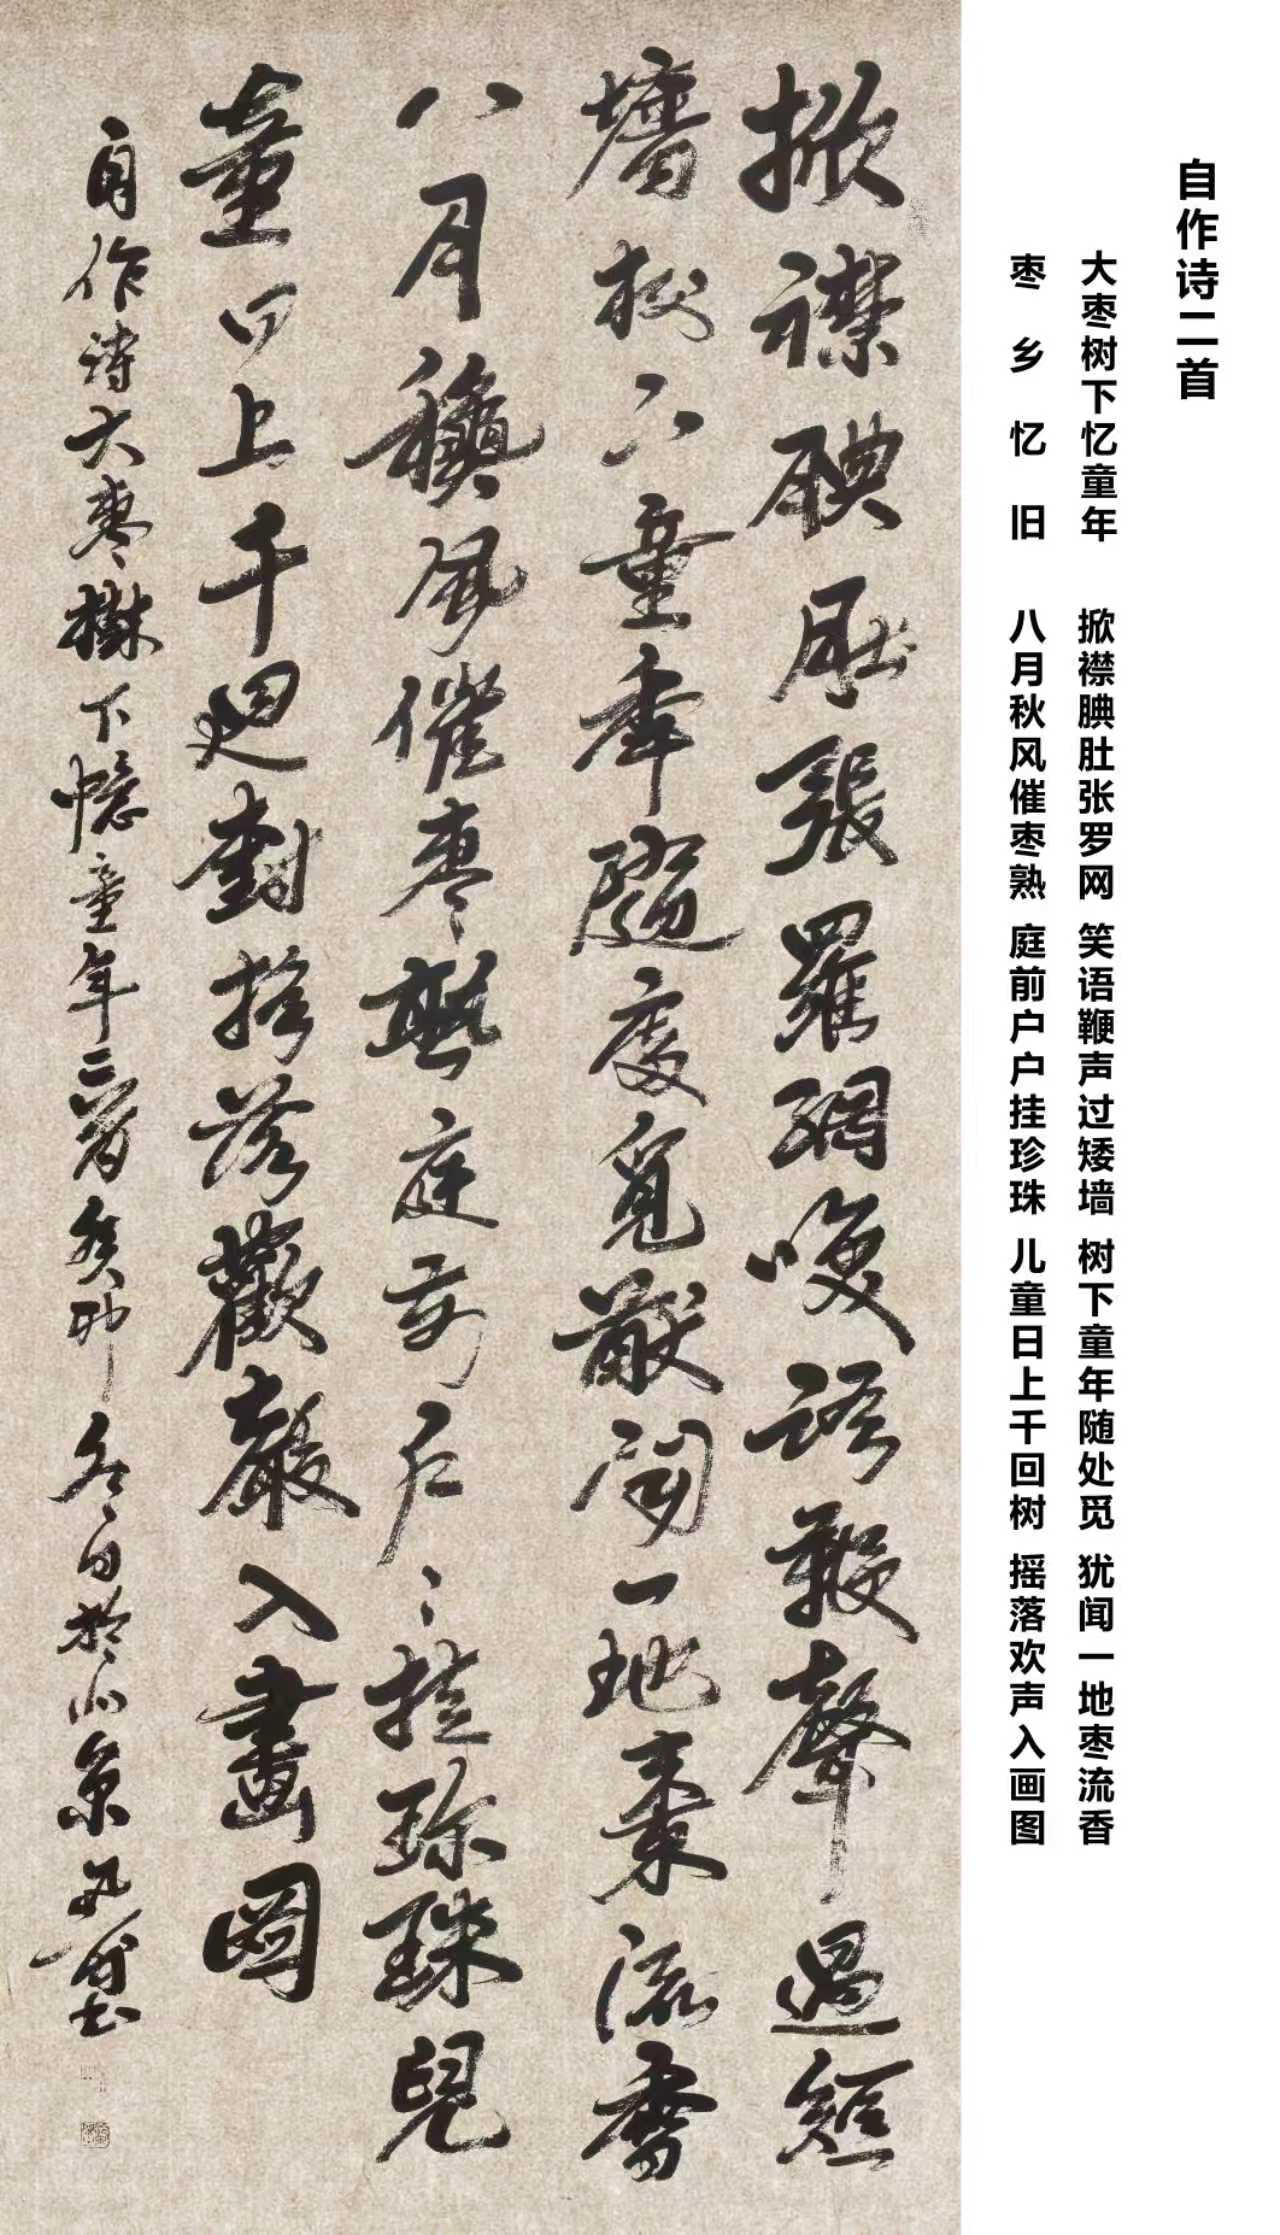 自作诗二首
大枣树下忆童年 掀襟腆肚张罗网 笑语鞭声过矮墙 树下童年随处觅 犹闻一地枣流香
枣乡忆旧 八月秋风催枣熟 庭前户户挂珍珠 儿童日上千回树 摇落欢声入画图
掀襟腆肚張羅網 語鞭聲過短
墻 下童年隨處覓猷聞一地棗流香
八月穐風催枣熟庭前户〻挂珍珠兒
童日上千迴樹搖落歡聲入畫圖
自作詩大枣樹下憶童年二首癸卯冬日於北京